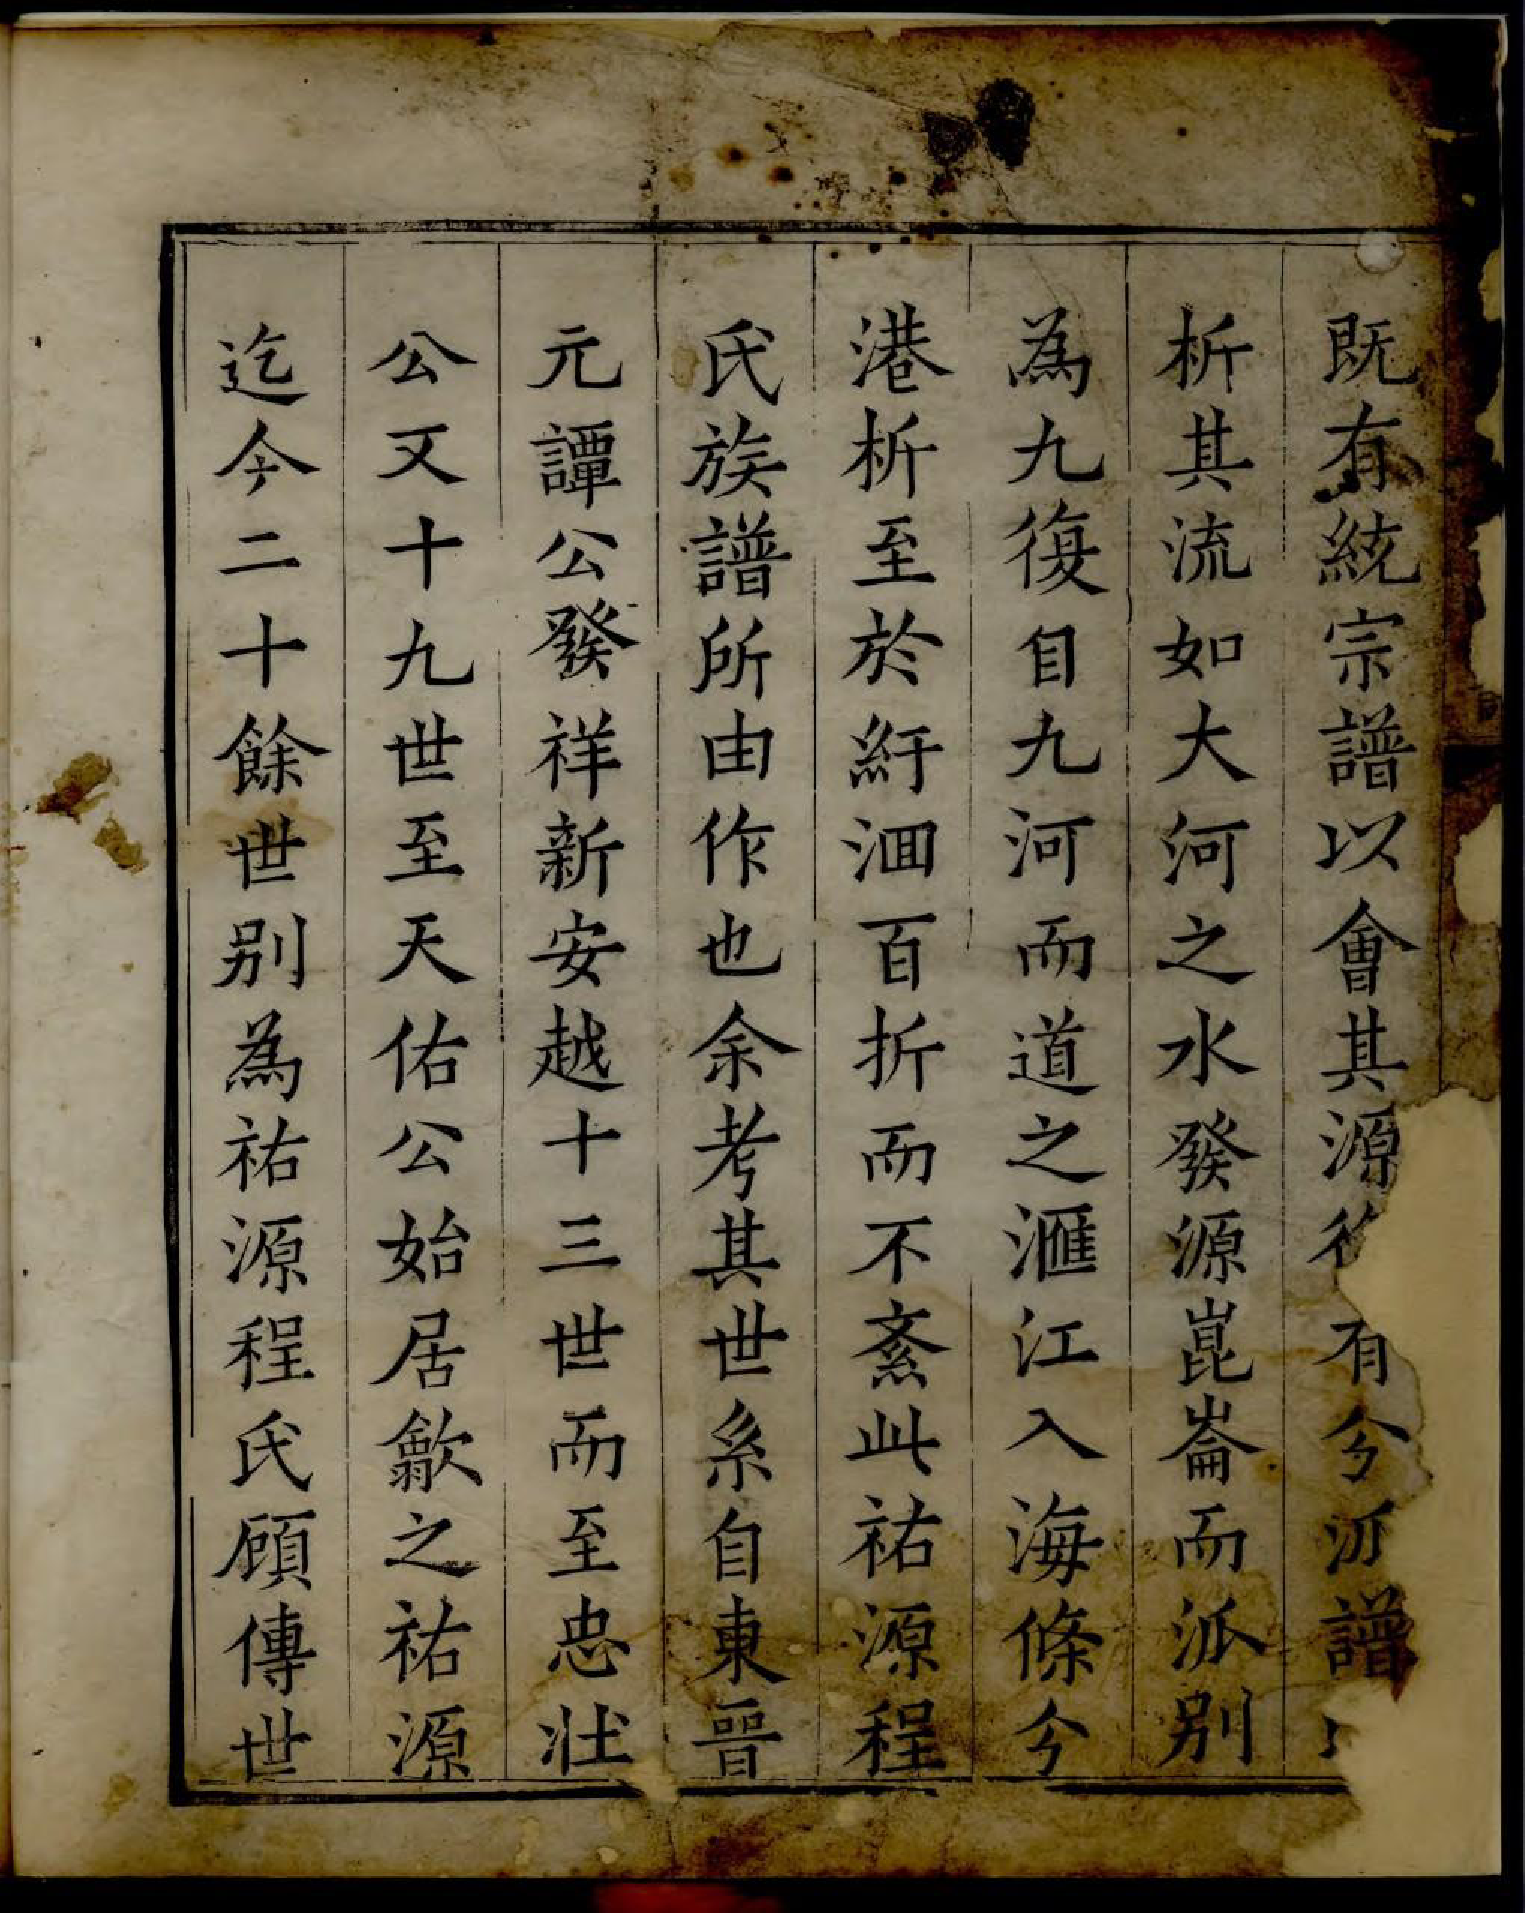 既有統宗譜以會其源有分派譜
析其流如大河之水發源崑崙而派别
為九復自九河而道之滙江入海條分
港析至於紆洄百折而不紊此祐源程
氏族譜所由作也余考其世系自東晉
元譚公發祥新安越十三世而至忠壯
公又十九世至天佑公始居歙之祐源
迄今二十餘世别為祐源程氏顧傳世